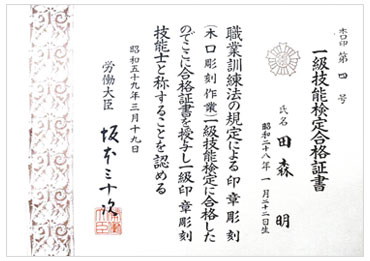 杏印 第四号
一級技能検定合格証書
氏名 田森 明
昭和二十八年一月二十二日生
職業訓練法の規定による印章彫刻
(木口彫刻作業)一級技能検定に合格した
のでここに合格証書を授与し一級印章彫刻
技能士と称することを認める
昭和五十九年三月十九日
労働大臣 坂本三十次